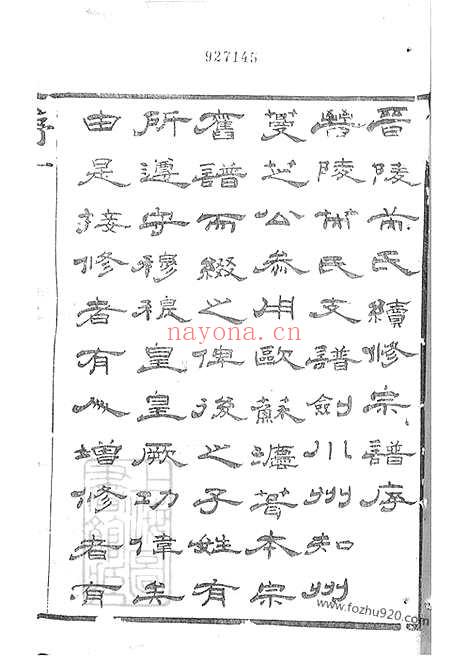 927145
晉陵氏續修宗譜序
陵氏支譜劍川州知州
蔓芝公參用歐蘇灋葺本宗
舊譜而綴之俾後之子姓有
所遵守穆穆皇皇厥功偉矣
由是接修者有人增修者有
序一
nayona.cn
www.fozhu920.com